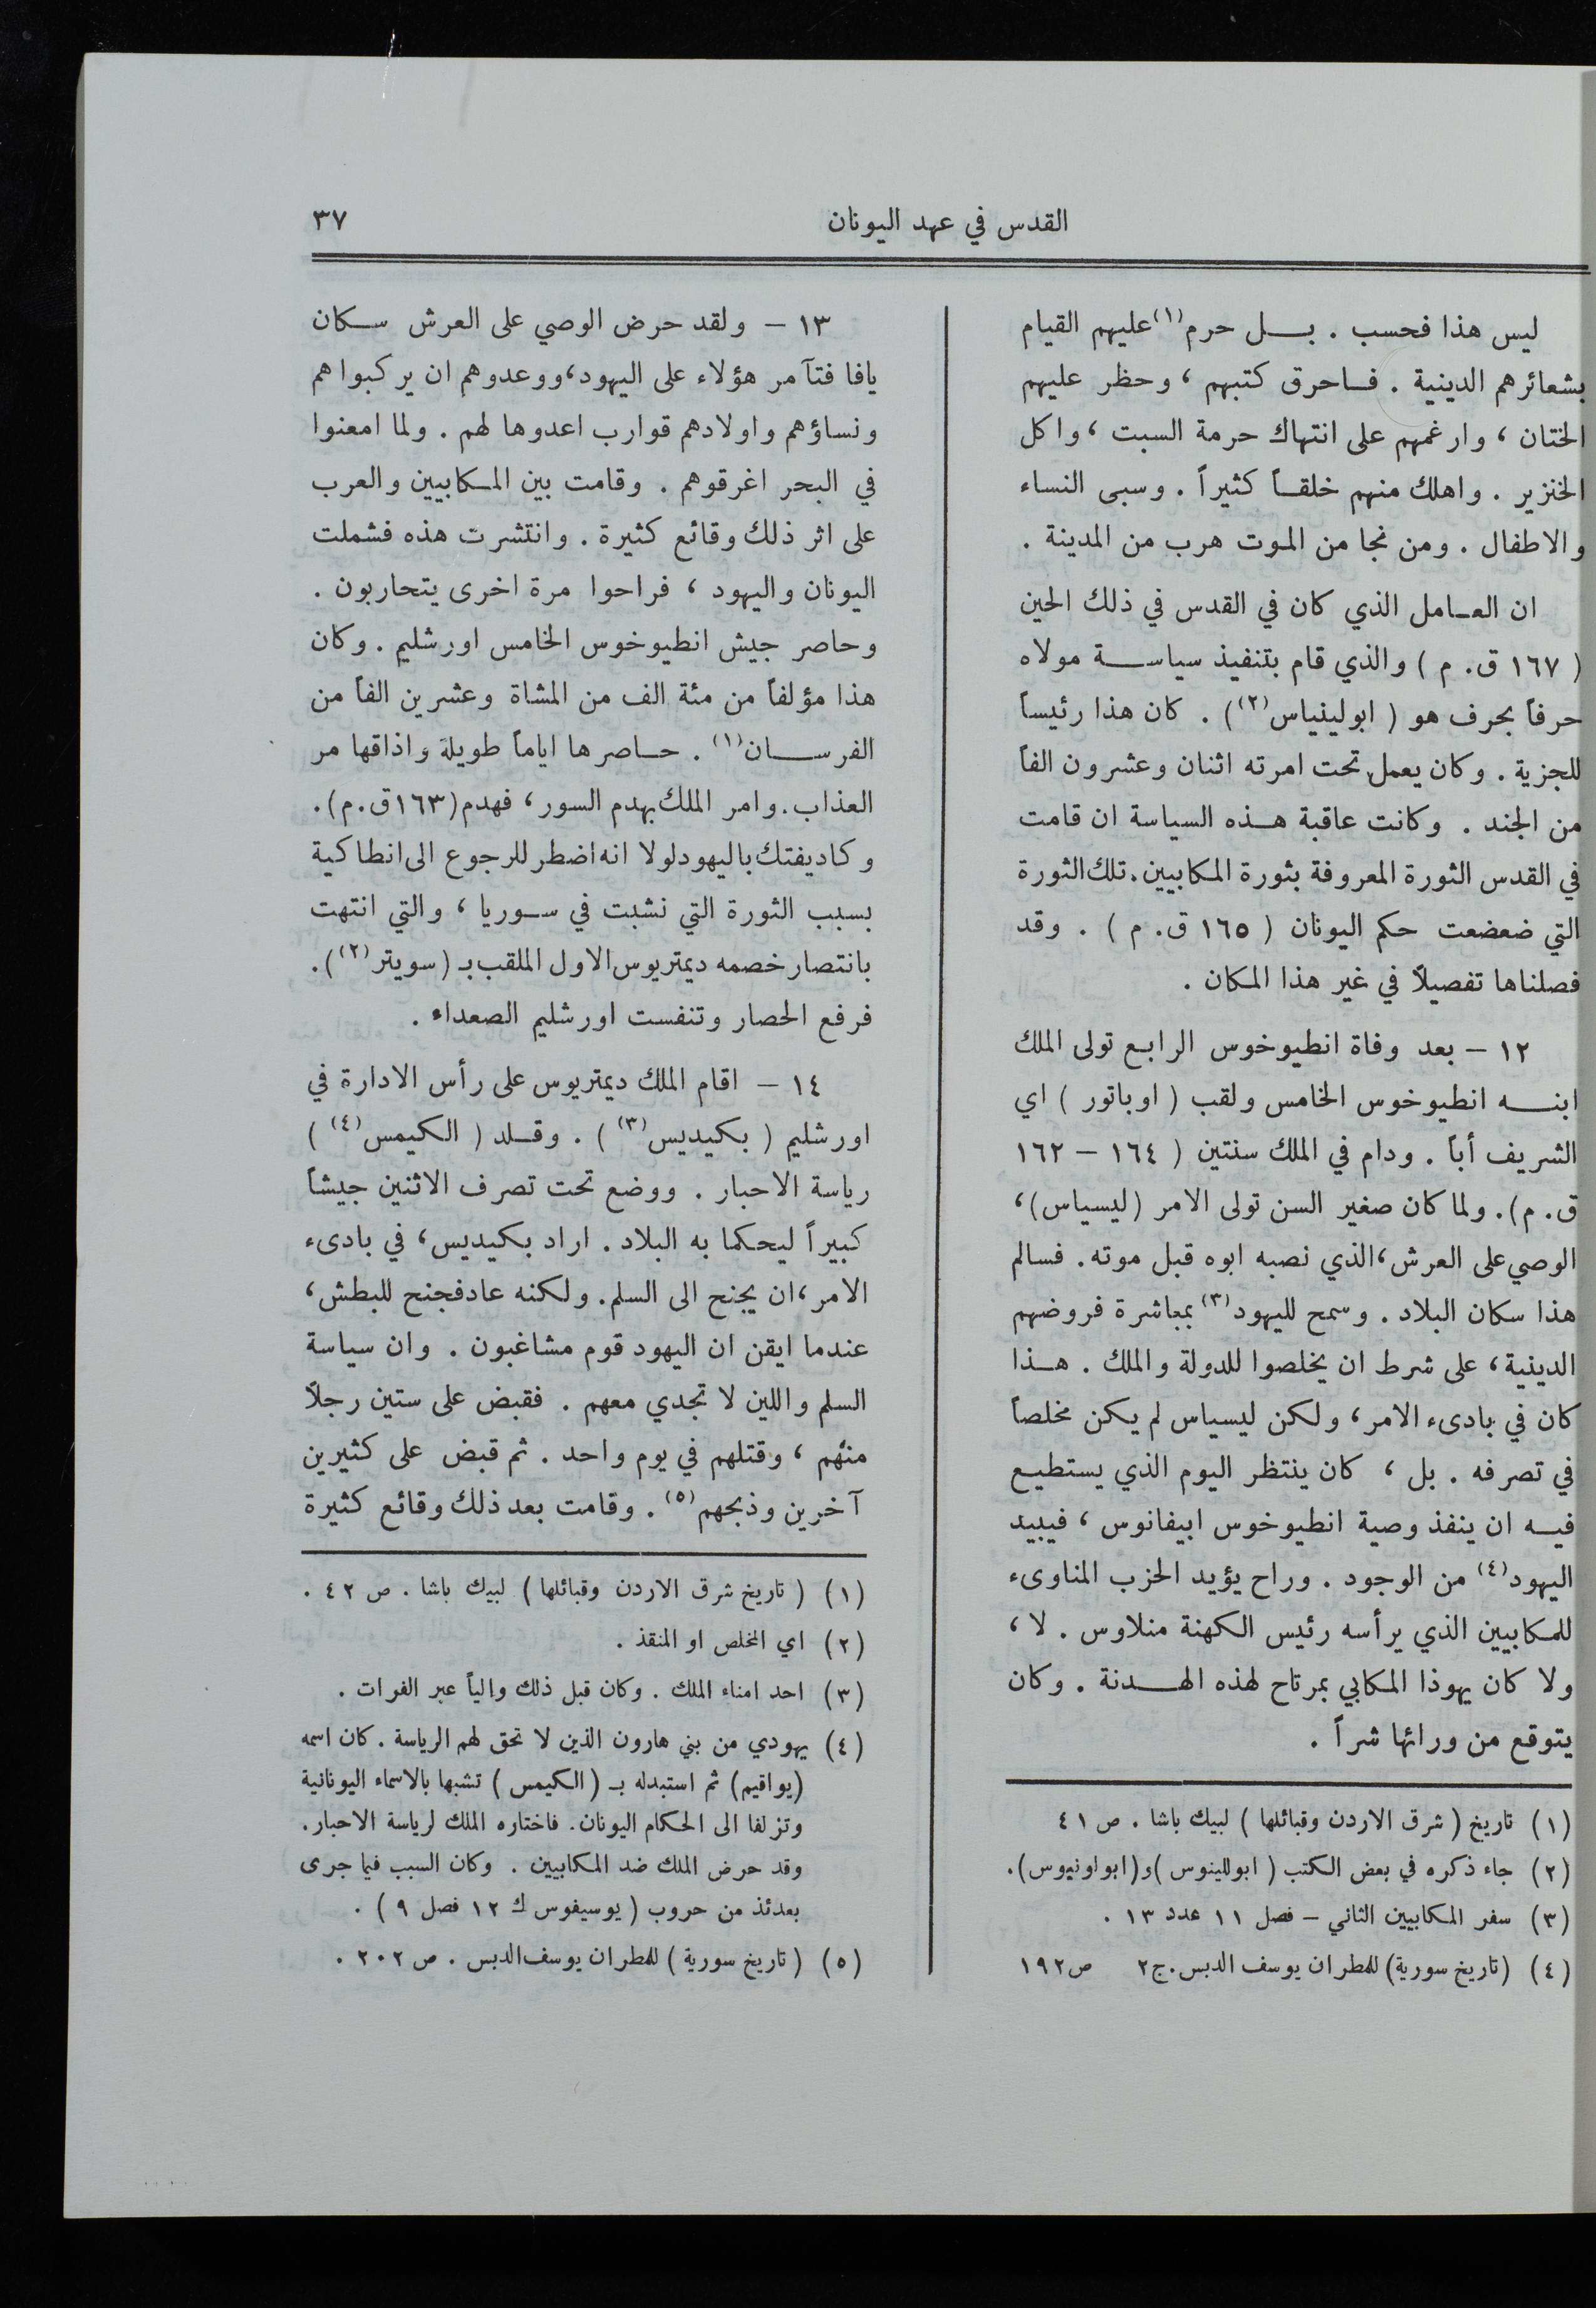 القدس في عهد اليونان
٣٧
ليس هذا فحسب . بل حرم(١) عليهم القيام
بشعائرهم الدينية . فاحرق كتبهم ، وحظر عليهم
الختان ، وارغمهم على انتهاك حرمة السبت ، واكل
الخنزير . واهلك منهم خلقاً كثيراً . وسبى النساء
والاطفال . ومن نجا من الموت هرب من المدينة .
ان العامل الذي كان في القدس في ذلك الحين
( ١٦٧ ق. م ) والذي قام بتنفيذ سياسة مولاه
حرفاً بحرف هو ( ابولينياس(٢) ) . كان هذا رئيساً
للجزية . وكان يعمل تحت امرته اثنان وعشرون الفاً
من الجند . وكانت عاقبة هذه السياسة ان قامت
في القدس الثورة المعروفة بثورة المكابيين . تلك الثورة
التي ضعضعت حكم اليونان ( ١٦٥ ق. م ) . وقد
فصلناها تفصيلاً في غير هذا المكان .
١٢ – بعد وفاة انطيوخوس الرابع تولى الملك
ابنه انطيوخوس الخامس ولقب ( اوباتور ) اي
الشريف أباً . ودام في الملك سنتين ( ١٦٤ – ١٦٢
ق. م). ولما كان صغير السن تولى الامر (ليسياس)،
الوصي على العرش ، الذي نصبه ابوه قبل موته. فسالم
هذا سكان البلاد . وسمح لليهود(٣) بمباشرة فروضهم
الدينية ، على شرط ان يخلصوا للدولة والملك . هذا
كان في بادىء الامر ، ولكن ليسياس لم يكن مخلصاً
في تصرفه . بل ، كان ينتظر اليوم الذي يستطيع
فيه ان ينفذ وصية انطيوخوس ابيفانوس ، فيبيد
اليهود(٤) من الوجود . وراح يؤيد الحزب المناوىء
للمكابيين الذي يرأسه رئيس الكهنة منلاوس . لا ،
ولا كان يهوذا المكابي بمرتاح لهذه الهدنة . وكان
يتوقع من ورائها شراً .
(١) تاريخ ( شرق الاردن وقبائلها ) لبيك باشا . ص ٤١
(٢) جاء ذكره في بعض الكتب ( ابوللينوس ) و( ابولونيوس ).
(٣) سفر المكابيين الثاني – فصل ١١ عدد ١٣ .
(٤) (تاريخ سورية) للمطران يوسف الدبس . ج٢ ص١٩٢
١٣ – ولقد حرض الوصي على العرش سكان
يافا فتآمر هؤلاء على اليهود ، ووعدوهم ان يركبوا هم
ونساؤهم واولادهم قوارب اعدوها لهم . ولما امعنوا
في البحر اغرقوهم . وقامت بين المكابيين والعرب
على اثر ذلك وقائع كثيرة . وانتشرت هذه فشملت
اليونان واليهود ، فراحوا مرة اخرى يتحاربون .
وحاصر جيش انطيوخوس الخامس اورشليم . وكان
هذا مؤلفاً من مئة الف من المشاة وعشرين الفاً من
الفرسان(١) . حاصرها اياماً طويلة واذاقها مر
العذاب . وامر الملك بهدم السور ، فهدم (١٦٣ق.م).
وكاد يفتك باليهود لولا انه اضطر للرجوع الى انطاكية
بسبب الثورة التي نشبت في سوريا ، والتي انتهت
بانتصار خصمه ديمتريوس الاول الملقب بـ ( سويتر(٢) ).
فرفع الحصار وتنفست اورشليم الصعداء .
١٤ – اقام الملك ديمتريوس على رأس الادارة في
اورشليم ( بكيديس(٣) ) . وقلد ( الكيمس(٤) )
رياسة الاحبار . ووضع تحت تصرف الاثنين جيشاً
كبيراً ليحكما به البلاد . اراد بكيديس ، في بادىء
الامر ، ان يجنح الى السلم . ولكنه عاد فجنح للبطش ،
عندما ايقن ان اليهود قوم مشاغبون . وان سياسة
السلم واللين لا تجدي معهم . فقبض على ستين رجلاً
منهم ، وقتلهم في يوم واحد . ثم قبض على كثيرين
آخرين وذبحهم(٥) . وقامت بعد ذلك وقائع كثيرة
(١) ( تاريخ شرق الاردن وقبائلها ) لبيك باشا . ص ٤٢ .
(٢) اي المخلص او المنقذ .
(٣) احد امناء الملك . وكان قبل ذلك والياً عبر الفرات .
(٤) يهودي من بني هارون الذين لا تحق لهم الرياسة . كان اسمه
(يواقيم) ثم استبدله بـ ( الكيمس ) تشبها بالاسماء اليونانية
وتزلفا الى الحكام اليونان. فاختاره الملك لرياسة الاحبار.
وقد حرض الملك ضد المكابيين . وكان السبب فيما جرى
بعدئذ من حروب ( يوسيفوس ك ١٢ فصل ٩ ) .
(٥) ( تاريخ سورية ) للمطران يوسف الدبس . ص ٢٠٢ .